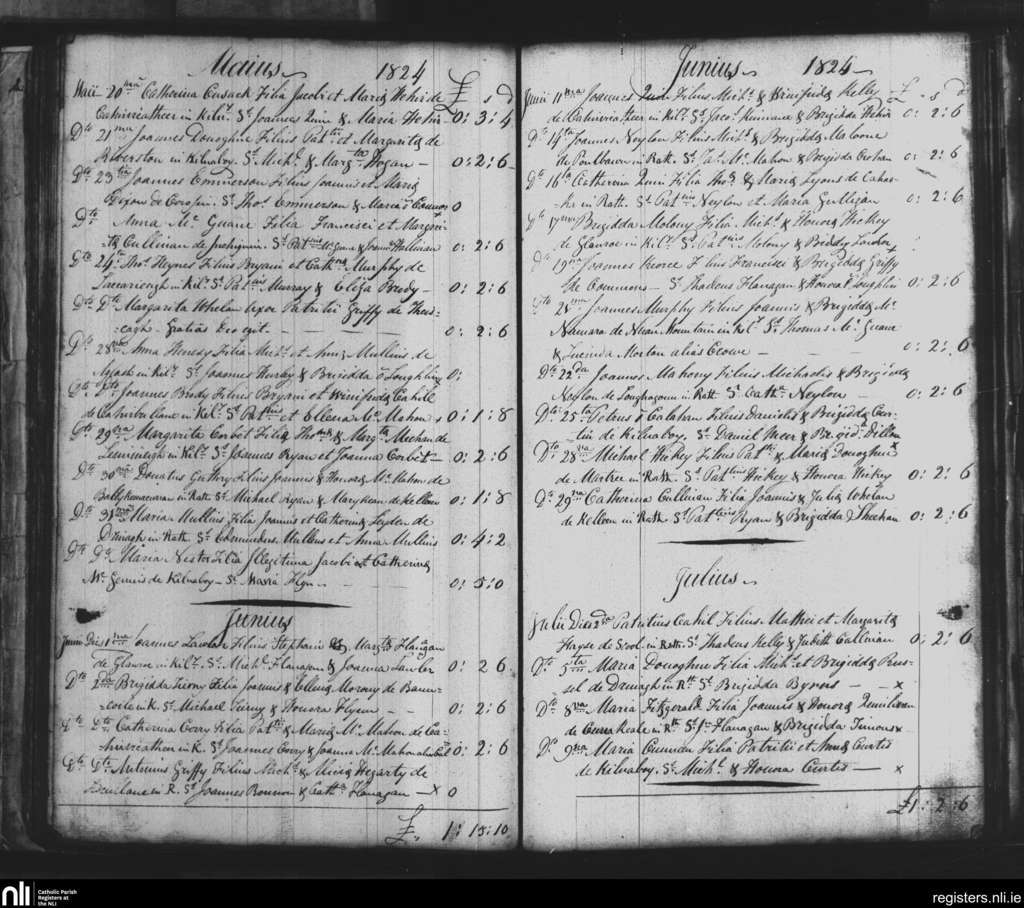 Maius 1824 £ s d
Maii 20ma Catherina Cusack Filia Jacobi et Mariæ Hehir de
in Kil. St Joannes Quin & Maria Hehir 0: 3: 4
Dto 21ma Joannes Donoghue Filius Pattii et Margaritæ de
Riverston in Kilnaboy. St Michl & Margta Hogan — 0: 2: 6
Dto 23tia Joannes Emmerson Filius Joannis et Mariæ
Dixon de Corofin. St Thos Emmerson & Maria Connor 0
Dto Anna Mc Guane Filia Francisci et Margari-
tæ Cullinan de Inchiquin. St Pattius Mc Guane & Hallinan 0: 2: 6
Dto 24ta Thos Heynes Filius Bryani et Cathnæ Murphy de
in Kil. St Pattius Murray & Eliza Brody — 0: 2: 6
Dto Dto Margarita Whelan uxor Patritii Griffy de
Gratias Deo egit. — 0: 2: 6
Dto 28va Anna Henesy Filia Michl et Annæ Mullins de
in Kil. St Joannes Hurley & Brigidda O Loughlin 0:
Dto Dto Joannes Brody Filius Bryani et Winifridæ Cahill
de in Kil. St Pattius et Ellena Mc Mahon 0: 1: 8
Dto 29na Margarita Corbet Filia Thomæ & Margtæ Meehan de
Lemeneigh in Kil. St Joannes Ryan et Joanna Corbet — 0: 2: 6
Dto 30ma Donatus Guthry Filius Joannis & Honoræ Mc Mahon de
in Rath. St Michael Ryan & Mary Kean de Killeen 0: 1: 8
Dto 31ma Maria Mullins Filia Joannis et Catherinæ Leyden de
Drinagh in Rath. St Mullins et Anna Mullins 0: 4: 2
Dto Do Maria Nestor Filia Illegitima Jacobi et Catherinæ
Mc Gennis de Kilnaboy — St Maria Flyn — 0: 5: 0
Junius
Junii Die 1ma Joannes Lawler Filius Stephani & Margtæ Flanagan
de Glanroe in Kil. St Michl Flanagan & Joanna Lawler 0: 2 6
Dto Brigidda Tierny Filia Joannis & Ellenæ Morony de Baun-
in K. St Michael Tierny & Honora Flynn — 0: 2: 6
Dto Catherina Corry Filia Pattii & Mariæ Mc Mahon de Ca-
in K. St Joannes Corry & Joanna Mc Mahon 0: 2: 6
Dto Dto Antonius Griffy Filius Michl & Mariæ Hegarty de
in R. St Joannes & Cathna Flanagan — x 0
£ 1: 15: 10
Junius 1824 £ s d
Junii 11ma Joannes Quin Filius Michl & Winifridæ Kelly
de in Kil. St Jacos & Brigidda Hehir 0: 2: 6
Do 14ta Joannes Neylon Filius Michl & Brigiddæ Malone
de Poulbaun in Rath. St Pat Mc Mahon & Brigidda Crohan 0: 2: 6
Do 16ta Catherina Quin Filia Thos & Mariæ Lyons de Caha-
in Rath. St Pattius Neylon et Maria Gulligan 0: 2: 6
Do 17ma Brigidda Molony Filia Michl & Honoræ Hickey
de Glanroe in Kil. St Pattius Molony & Biddy Lawler +
Do 19na Joannes Kearse Filius Francisci & Brigiddæ Griffy
de Commons — St Thadeus Flanagan & Honora Loughlin 0: 2: 6
Joannes Murphy Filius Joannis & Brigiddæ Mc
Namara de Mountain in Kil. St Thomas Mc Guane
& Lucinda Morton alias Crowe — 0: 2: 6
Do 22da Joannes Mahony Filius Michaelis & Brigiddæ
Neylon de in Rath St Cathna Neylon — 0: 2: 6
Do 25ta Petrus O Calahan Filius Danielis & Brigiddæ Cur-
tin de Kilnaboy. St Daniel Meer & Brigida Dillon
Do 28va Michael Hickey Filius Pattii & Mariæ Donoghue
de in Rath. St Pattius Hickey & Honora Hickey 0: 2: 6
Do 29na Catherina Cullinan Filia Joannis & Judiæ Whelan
de Killeen in Rath. St Pattius Ryan & Brigidda Sheehan 0: 2: 6
Julius
Julii Die 2da Patritius Cahil Filius Matthei et Margaritæ
Hayde de Scool in Rath. St Thadeus Kelly & Judith Cullinan 0: 2: 6
Do 5ta Maria Donoghue Filia Michl et Brigiddæ Rus-
sel de Drinagh in Rth St Brigidda Bynes — x
Do 8va Maria Fitzgerald Filia Joannis & Honoræ Quinlivan
de in Rth. St Jno Flanagan & Brigidda x
Do 9na Maria Cuninan Filia Patritii et Annæ Curtis
de Kilnaboy. St Michl & Honora Curtis — x
£1: 2: 6
nli Catholic Parish
Registers at
the NLI
registers.nli.ie